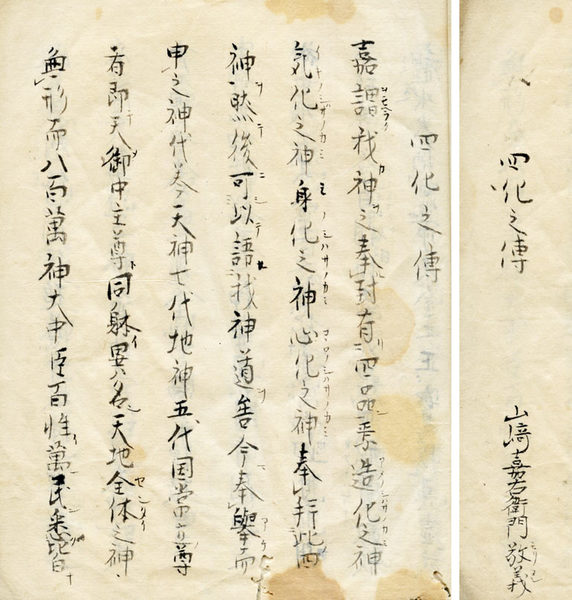 四化之傳
山﨑嘉右衛門敬義
四化之傳
嘉謂我神之奉封有四品焉造化之神
気化之神身化之神心化之神奉拜此四
神然後可以語我神道舎今奉擧而
申之神代巻天神七代地神五代国常立尊
者即天御中主尊同躰異名天地全体之神
無形而八百萬神大中臣百惟萬民悉皆